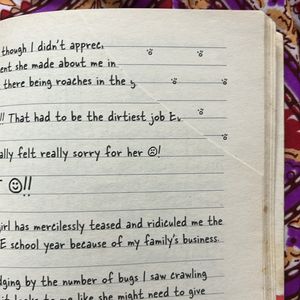 though I didn't apprec
ent she made about me in
there being roaches in the
!! That had to be the dirtiest job E
ally felt really sorry for her ☹!
☺!!
girl has mercilessly teased and ridiculed me the
E school year because of my family's business.
dging by the number of bugs I saw crawling
it looks to me like she might need to give